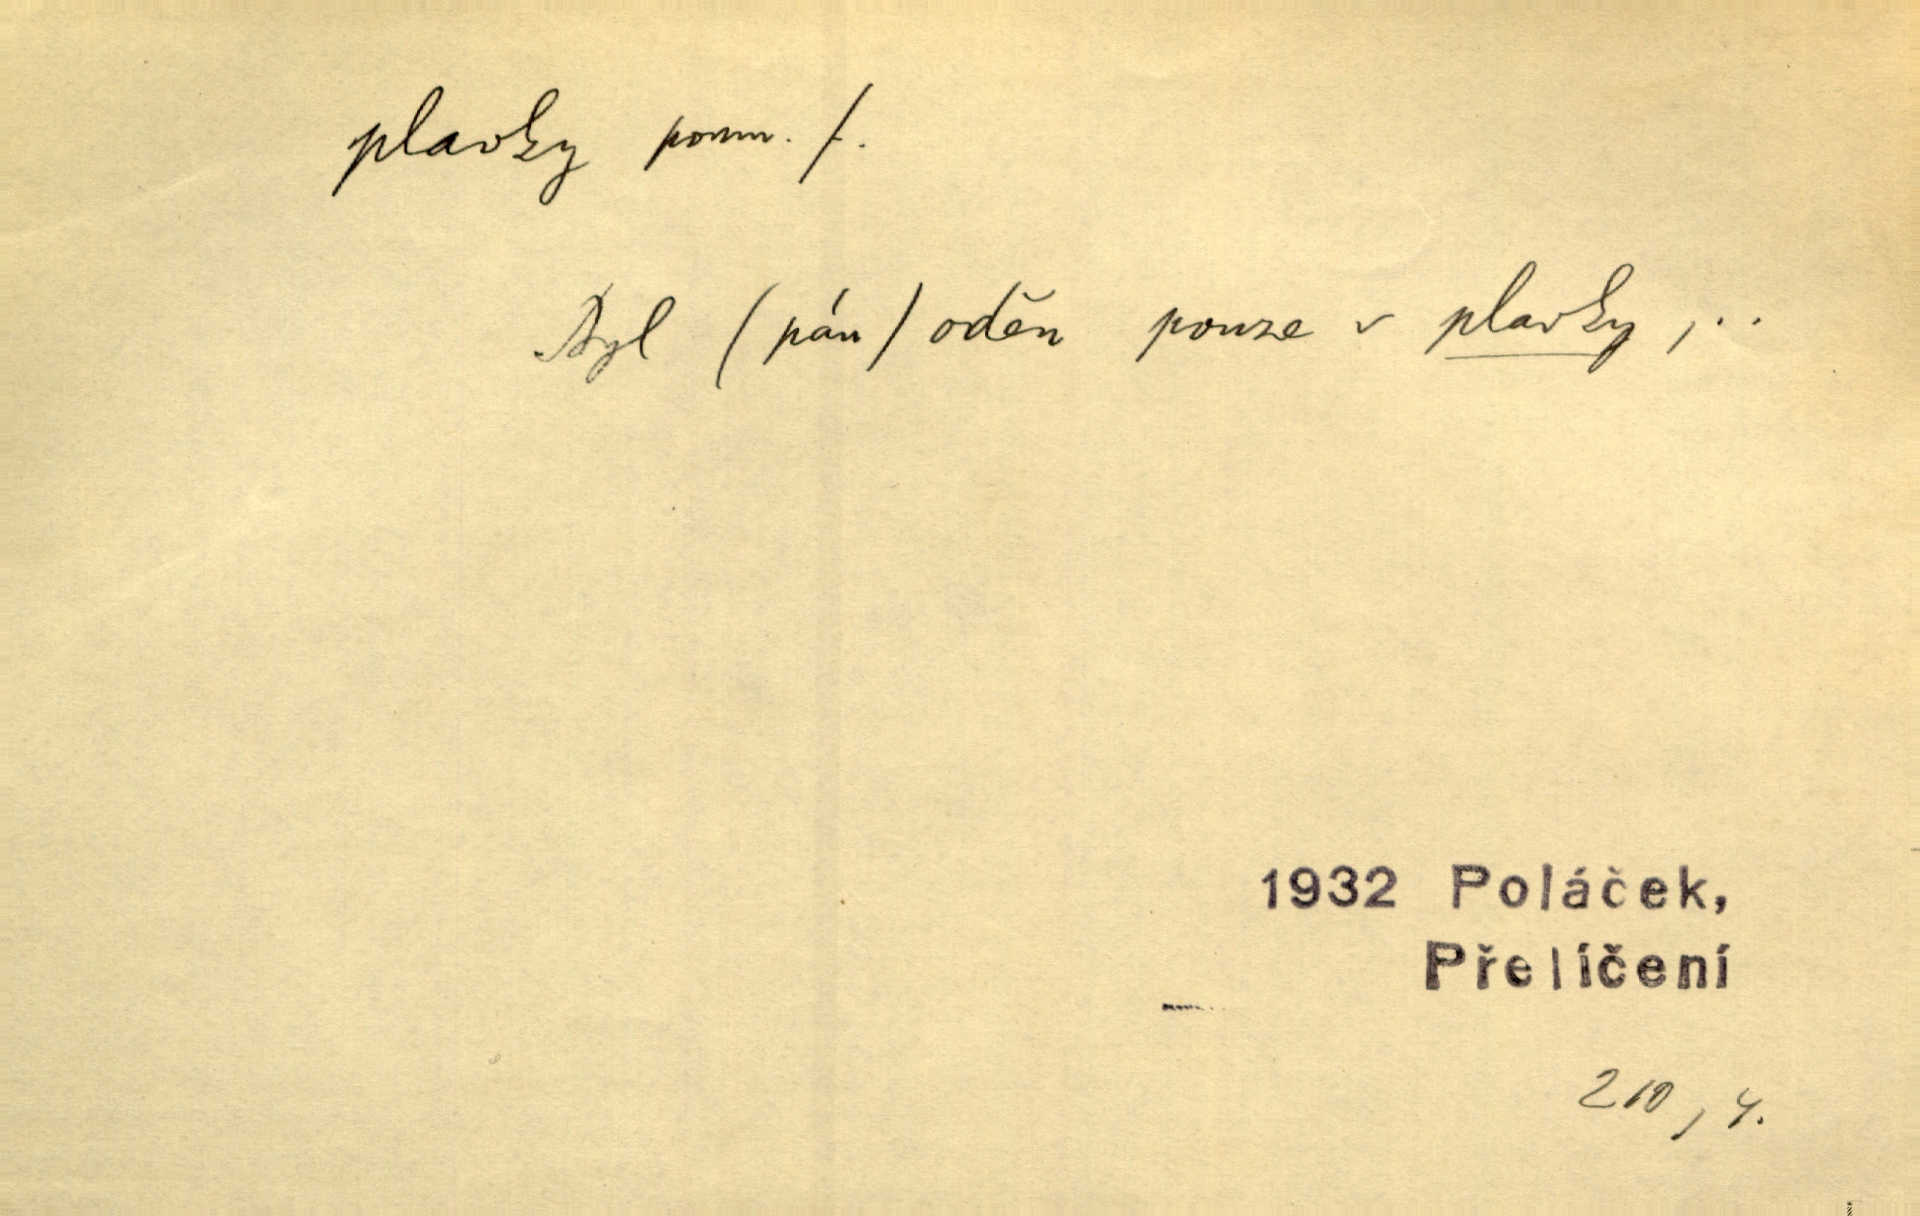 plavky pomn. f.
Byl (pán) oděn pouze v plavky,..
1932 Poláček,
Přelíčení
210, 4.